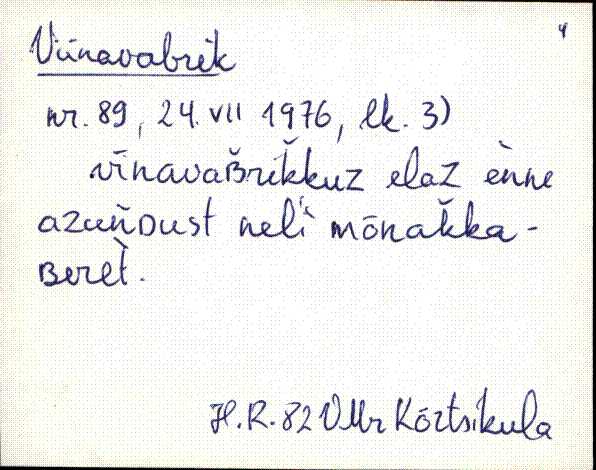 4
Viinavabrik
nr. 89, 24. VII 1976, lk. 3)
vīnavaʙ̌rik̆kuz elaz ènne
azuňᴅust neli mōnak̆ka-
ʙerèt.
H.R. 82 VMr Kõrtsikula